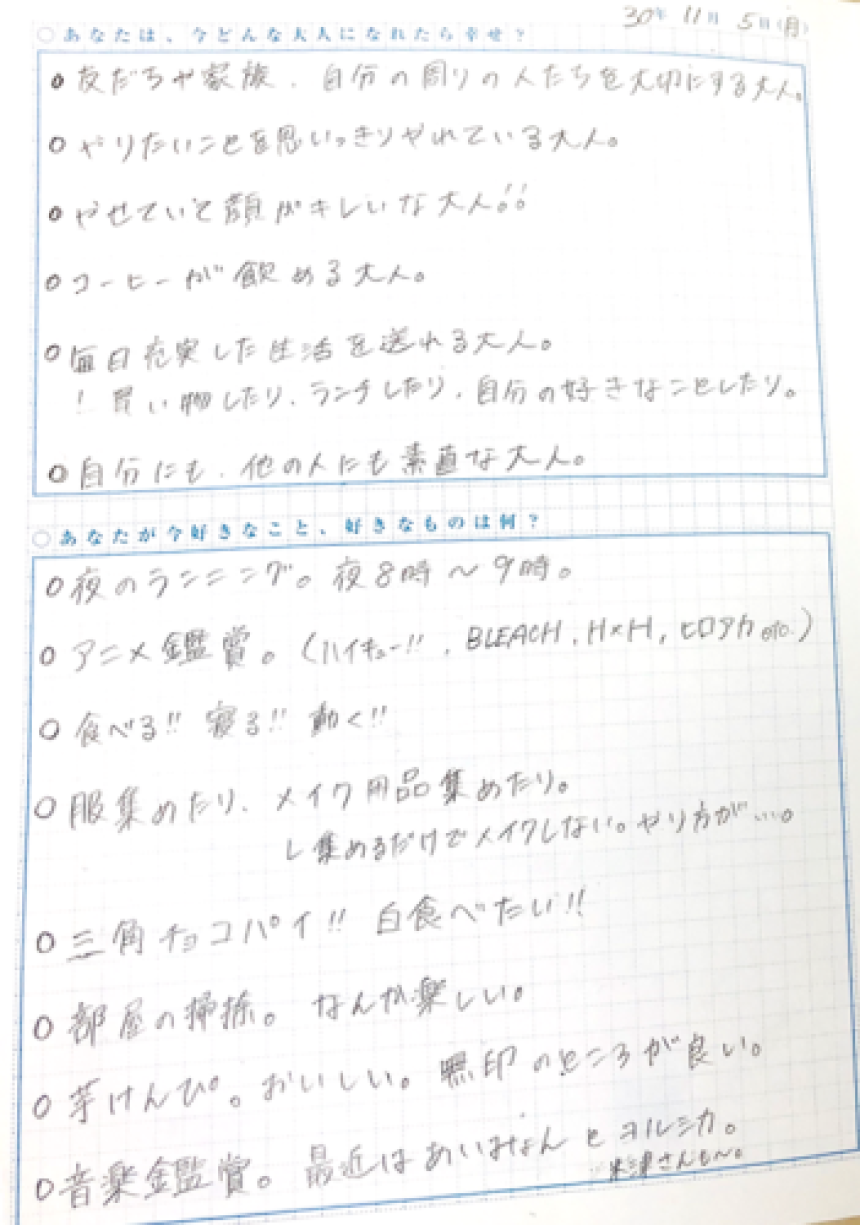 30年 11月 5日(月)
○あなたは、今どんな大人になれたら幸せ?
○友だちや家族、自分の周りの人たちを大切にする大人。
○やりたいことを思いっきりやれている大人。
○やせていて顔がキレイな大人!!
○コーヒーが飲める大人。
○毎日充実した生活を送れる大人。
! 買い物したり、ランチしたり、自分の好きなことしたり。
○自分にも、他の人にも素直な大人。
○あなたが今好きなこと、好きなものは何?
○夜のランニング。夜8時〜9時。
○アニメ鑑賞。(ハイキュー!!、BLEACH、H×H、ヒロアカetc.)
○食べる!! 寝る!! 動く!!
○服集めたり、メイク用品集めたり。
し集めるだけでメイクしない。やり方が…。
○三角チョコパイ!! 白食べたい!!
○部屋の掃除。なんか楽しい。
○芋けんぴ。おいしい。無印のところが良い。
○音楽鑑賞。最近はあいみょんとヨルシカ。
米津さんも〜。